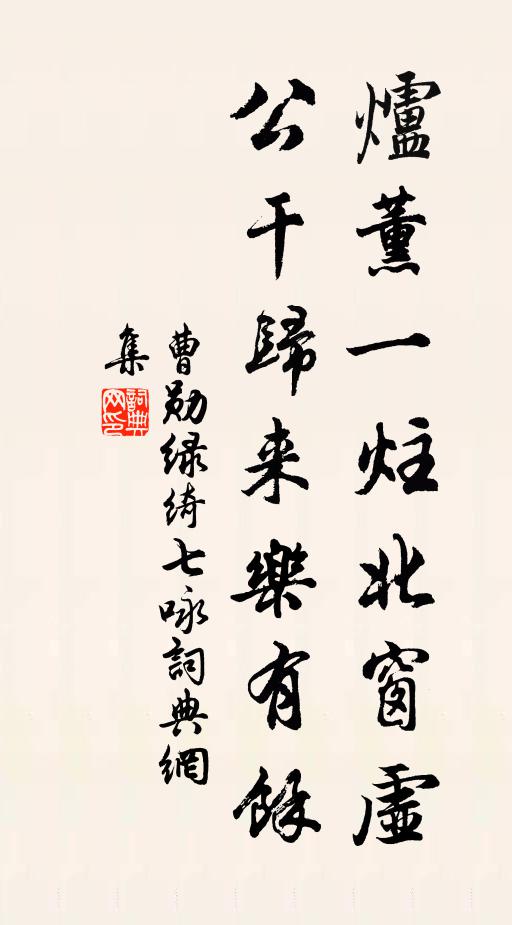 爐薰一炷北窗虛
公干歸来樂有餘
曹勛绿绮七咏詞典網
集
詞典网印